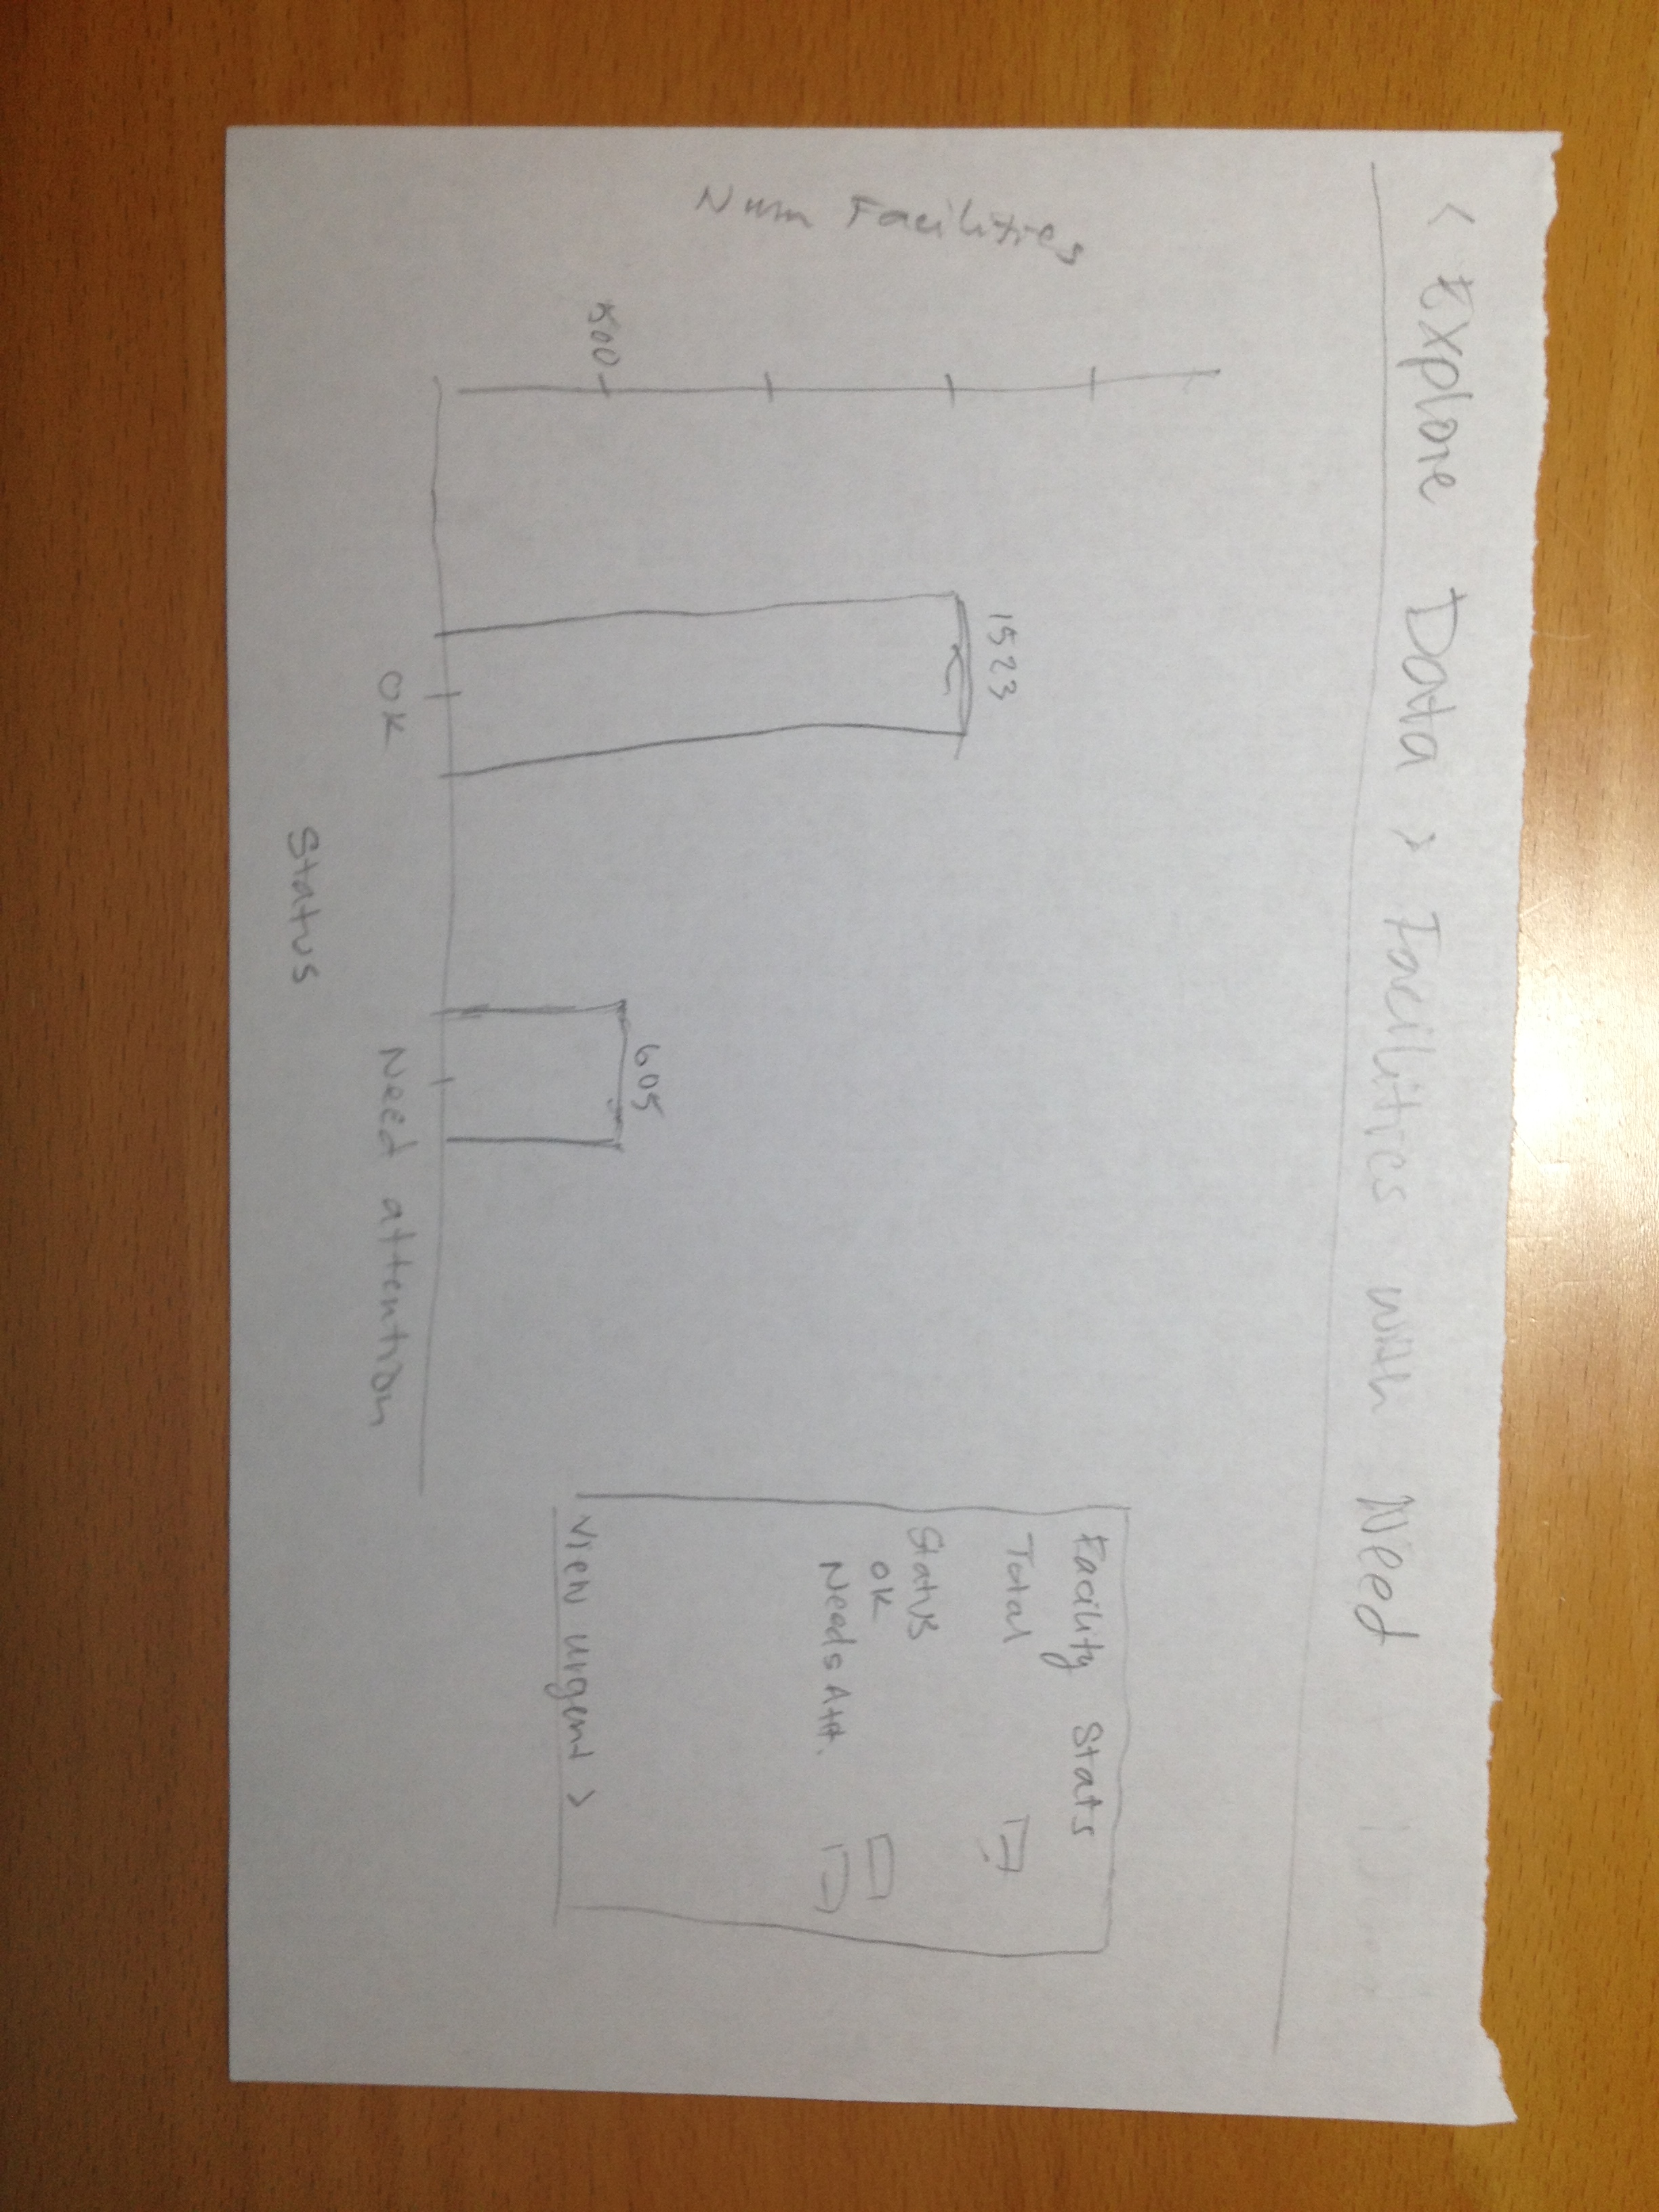 < Explore Data > Facilities with Need
Num Facilities
500
1523
605
OK
Need attention
Status
Facility Stats
Total
Status
OK
Needs Att.
View urgent >